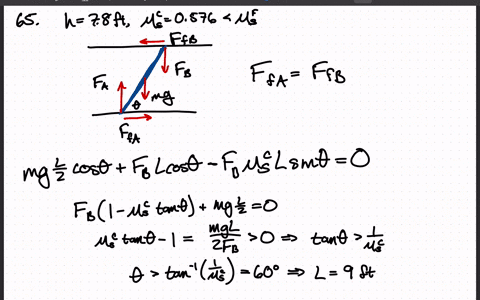 65. h=7.8ft, μₛᶜ=0.576 < μₛᶠ
F_fB
F_A
F_B
θ
mg
F_fA
F_fA = F_fB
mg L/2 cosθ + F_B L cosθ − F_B μₛᶜ L sinθ = 0
F_B(1−μₛᶜ tanθ) + mg L/2 = 0
μₛᶜ tanθ − 1 = mgL/2F_B > 0 ⇒ tanθ > 1/μₛᶜ
θ > tan⁻¹(1/μₛᶜ) = 60° ⇒ L = 9 ft